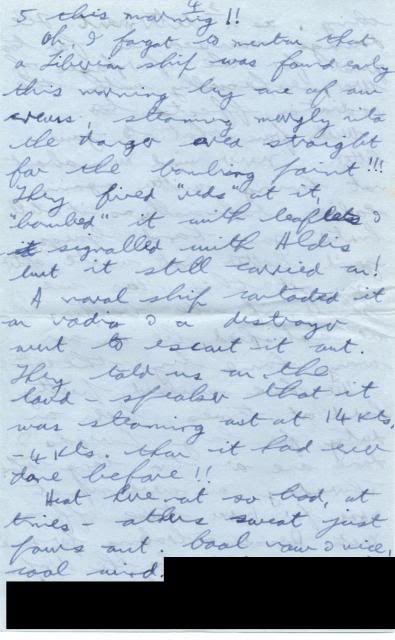 4
5 this morning!!
Oh, I forgot to mention that
a Liberian ship was found early
this morning by one of our
crews, steaming merrily into
the danger area straight
for the bombing point!!!
They fired "reds" at it,
"bombed" it with leaflets &
signalled with Aldis
but it still carried on!
A naval ship contacted it
on radio & a destroyer
went to escort it out.
They told us on the
loud-speaker that it
was steaming out at 14 kts,
- 4 kts. than it had ever
done before!!
Heat here not so bad, at
times - others sweat just
pours out. Cool now & nice,
cool wind.